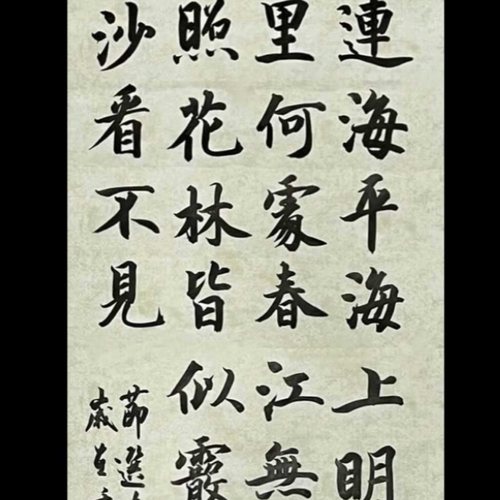 連海平海上明
里何處春江無
照花林皆似霰
沙看不見
節選
歲在